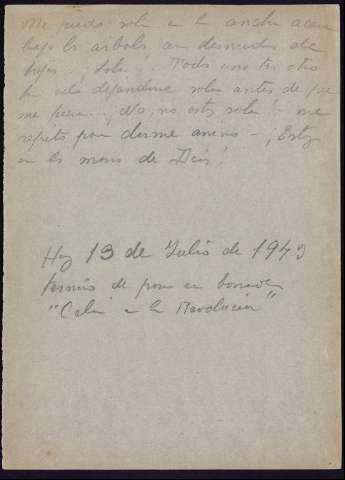 Me quedo sola en la ancha acera
bajo los árboles aun desnudos de
hojas ¡Sola! Todos uno tras otro
han ido dejándome sola antes de que
me fuera. ¡No, no estoy sola! - me
repito para darme ánimo - ¡Estoy
en las manos de Dios!
Hoy 13 de Julio de 1943
termino de poner en borrador
"Celia en la Revolución"